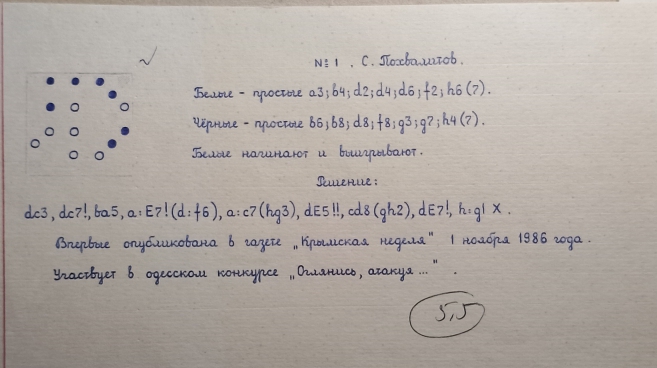 № 1 . С. Похвалитов.
Белые - простые a3; b4; d2; d4; d6; f2; h6 (7).
Чёрные - простые b6; b8; d8; f8; g3; g7; h4 (7).
Белые начинают и выигрывают.
Решение:
dc3, dc7!, ba5, a:E7! (d:f6), a:c7 (hg3), dE5!!, cd8 (gh2), dE7!, h:g1 X .
Впервые опубликована в газете „Крымская неделя" 1 ноября 1986 года.
Участвует в одесском конкурсе „Оглянись, атакуя ..." .
5,5